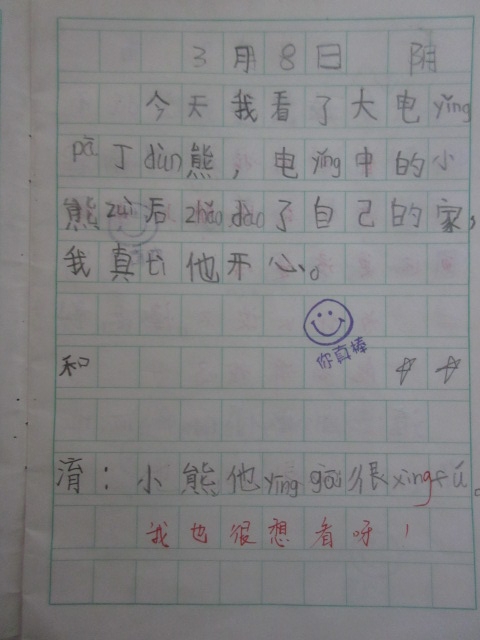 3月8日 阴
今天我看了大电yǐng
pā丁dùn熊，电yǐng中的小
熊zuì后zhǎo dào了自己的家，
我真tì他开心。
你真棒
和
淯：小熊他yīng gāi很xìng fú。
我也很想看呀！